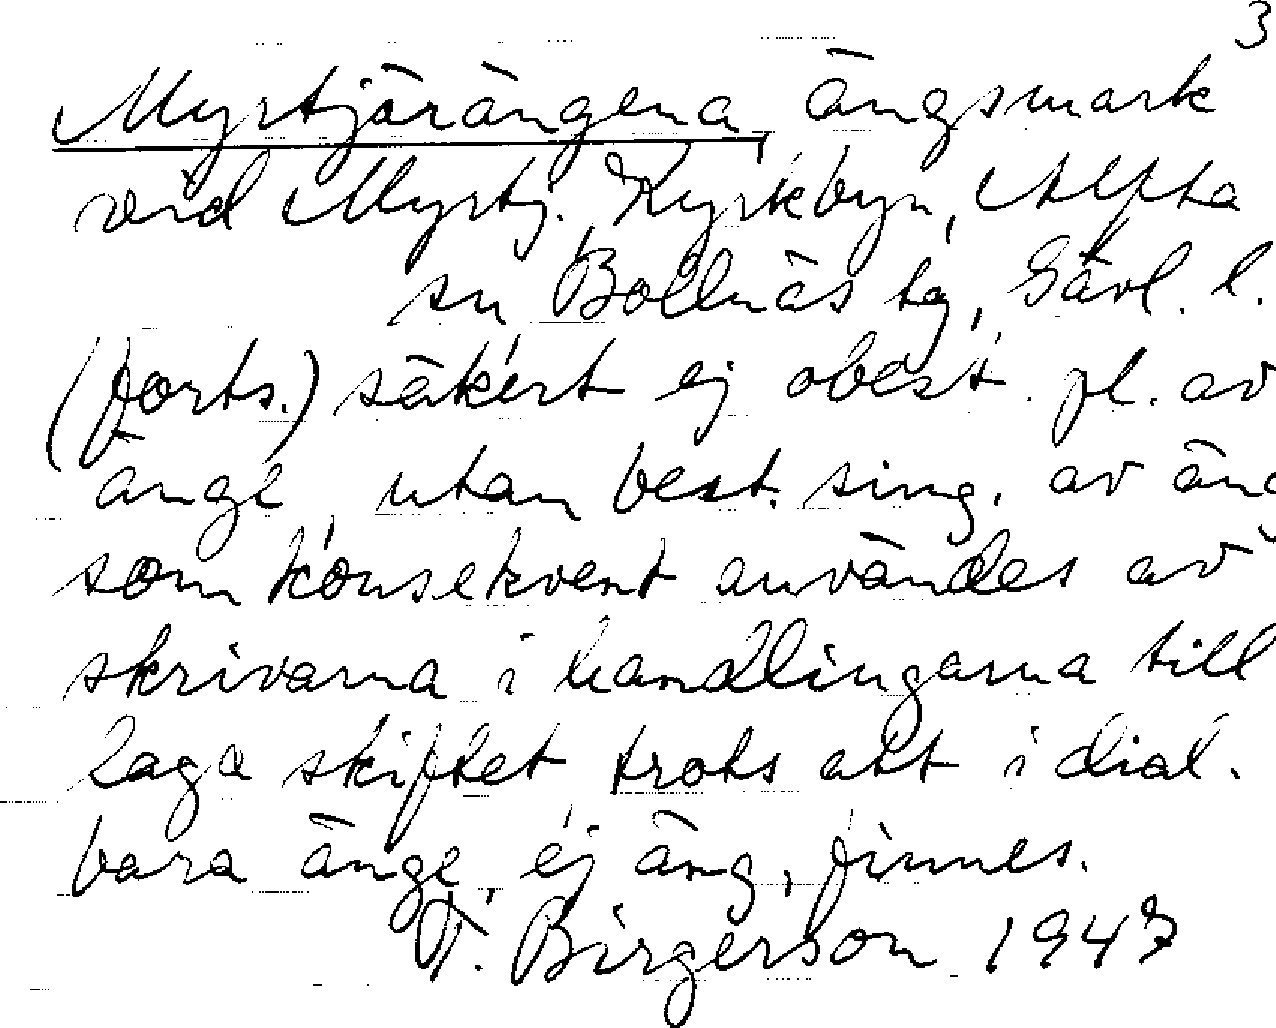 3
Myrtjärängena, ängsmark
vid Myrtj. Kyrkbyn, Alfta
sn Bollnäs tg, Gävl. l.
(forts.) säkert ej obest. pl. av
änge, utan best. sing. av äng
som konsekvent användes av
skrivarna i handlingarna till
Laga skiftet trots att i dial.
bara änge, ej äng, finnes.
F. Birgerson 1947